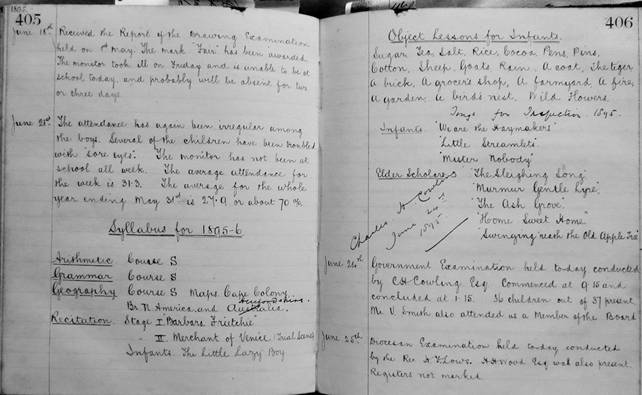 1895
405
June 18th Received the Report of the Drawing Examination
held on 1st May. The mark "Fair" has been awarded.
The monitor took ill on Friday and is unable to be at
school today, and probably will be absent for two
or three days.
June 21st The attendance has again been irregular among
the boys. Several of the children have been troubled
with "sore eyes". The monitor has not been at
school all week. The average attendance for
the week is 31.3. The average for the whole
year ending May 31st is 27.9 or about 70 %.
Syllabus for 1895-6
Arithmetic Course S
Grammar Course S
Geography Course S Maps Cape Colony,
Herefordshire
Br. N. America, and Australia.
Recitation Stage I Barbara Frietchie
" II Merchant of Venice (Trial Scene)
Infants. The Little Lazy Boy
406
Object Lessons for Infants.
Sugar Tea, Salt, Rice, Cocoa Pens, Pins,
Cotton, Sheep, Goats Rain, A coat, The tiger
A brick, A grocer's shop, A farmyard, A fire,
A garden, A bird's nest. Wild Flowers
Songs for Inspection 1895.
Infants. "We are the Haymakers"
"Little Streamlets"
"Mister Nobody"
Elder Scholars "The Sleighing Song"
"Murmur Gentle Lyre"
"The Ash Grove"
"Home Sweet Home"
"Swinging 'neath the Old Apple Tree"
Charles H Cowling
June 24th 1895
June 24th Government Examination held today conducted
by C.H. Cowling Esq. Commenced at 9.15 and
concluded at 1.15. 36 children out of 37 present
Mr. V. Smith also attended as a Member of the Board
June 25th Diocesan Examination held today conducted
by the Rev. Lowe. H. Wood Esq was also present.
Registers not marked.